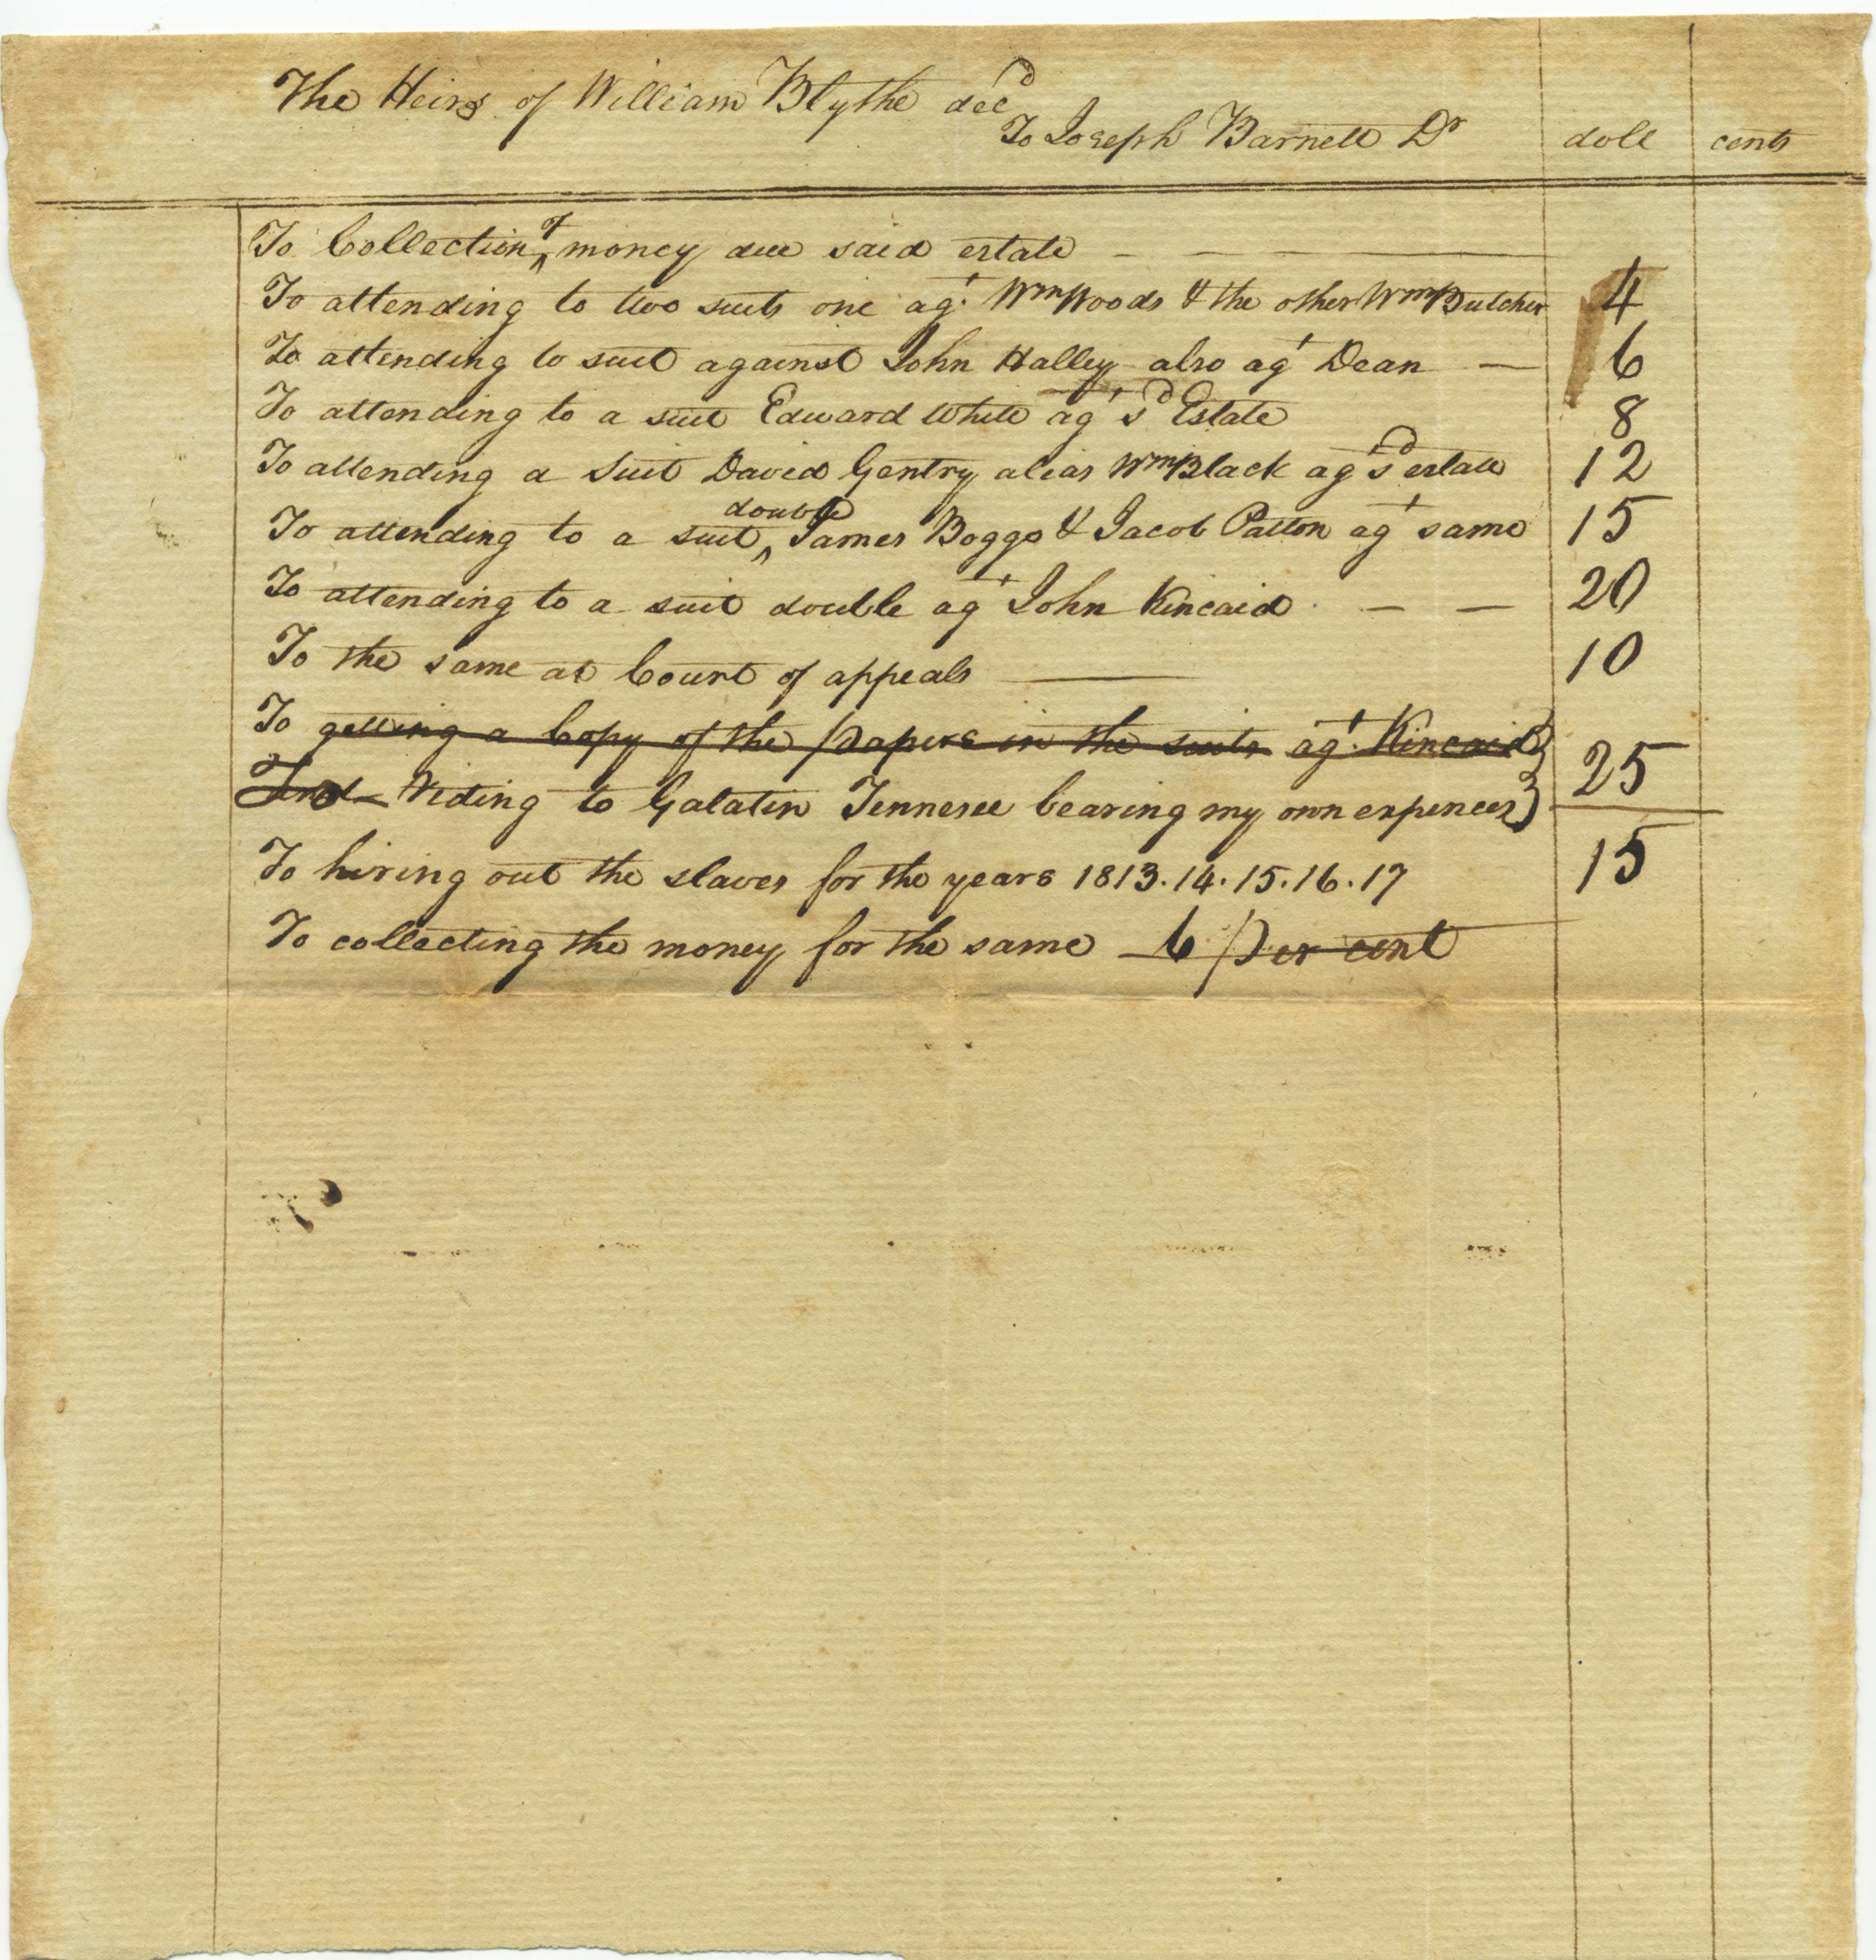 The Heirs of William Blythe decd
To Joseph Barnett Dr doll cents
To Collection of money due said estate
To attending to two suits one agt Wm Woods & the other Wm Butcher 4
To attending to suit against John Halley also agt Dean 6
To attending to a suit Edward White agt sd Estate 8
To attending a Suit David Gentry alias Wm Black agt sd estate 12
To attending to a suit double James Boggs & Jacob Patton agt same 15
To attending to a suit double agt John Kincaid 20
To the same at Court of appeals 10
To getting a Copy of the papers in the suits agt Kincaid
And Riding to Galatin Tennesee bearing my own expences 25
To hiring out the slaves for the years 1813.14.15.16.17 15
To collecting the money for the same 6 Per cent